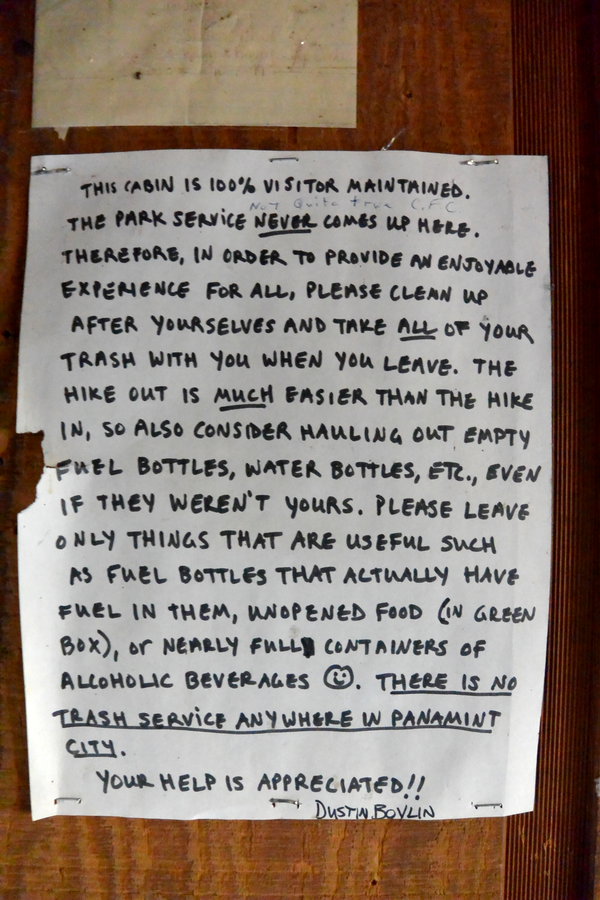 THIS CABIN IS 100% VISITOR MAINTAINED.
Not Quite true C.F.C.
THE PARK SERVICE NEVER COMES UP HERE.
THEREFORE, IN ORDER TO PROVIDE AN ENJOYABLE
EXPERIENCE FOR ALL, PLEASE CLEAN UP
AFTER YOURSELVES AND TAKE ALL OF YOUR
TRASH WITH YOU WHEN YOU LEAVE. THE
HIKE OUT IS MUCH EASIER THAN THE HIKE
IN, SO ALSO CONSIDER HAULING OUT EMPTY
FUEL BOTTLES, WATER BOTTLES, ETC., EVEN
IF THEY WEREN'T YOURS. PLEASE LEAVE
ONLY THINGS THAT ARE USEFUL SUCH
AS FUEL BOTTLES THAT ACTUALLY HAVE
FUEL IN THEM, UNOPENED FOOD (IN GREEN
BOX), or NEARLY FULL CONTAINERS OF
ALCOHOLIC BEVERAGES ☺. THERE IS NO
TRASH SERVICE ANYWHERE IN PANAMINT
CITY.
YOUR HELP IS APPRECIATED!!
DUSTIN BOVLIN